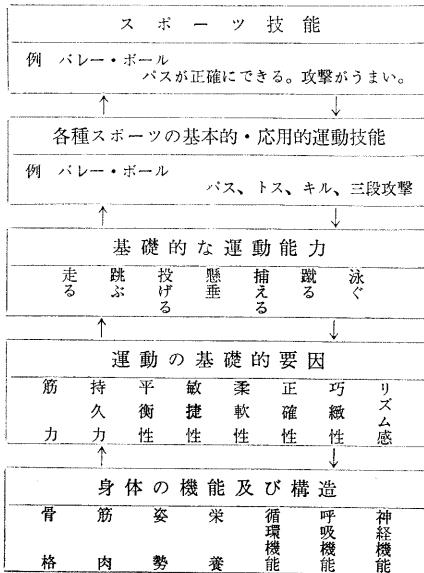 スポーツ技能
例 バレー・ボール
パスが正確にできる。攻撃がうまい。
↑ ↓
各種スポーツの基本的・応用的運動技能
例 バレー・ボール
パス、トス、キル、三段攻撃
↑ ↓
基礎的な運動能力
走る 跳ぶ 投げる 懸垂 捕える 蹴る 泳ぐ
↑ ↓
運動の基礎的要因
筋力 持久力 平衡性 敏捷性 柔軟性 正確性 巧緻性 リズム感
↑ ↓
身体の機能及び構造
骨格 筋肉 姿勢 栄養 循環機能 呼吸機能 神経機能